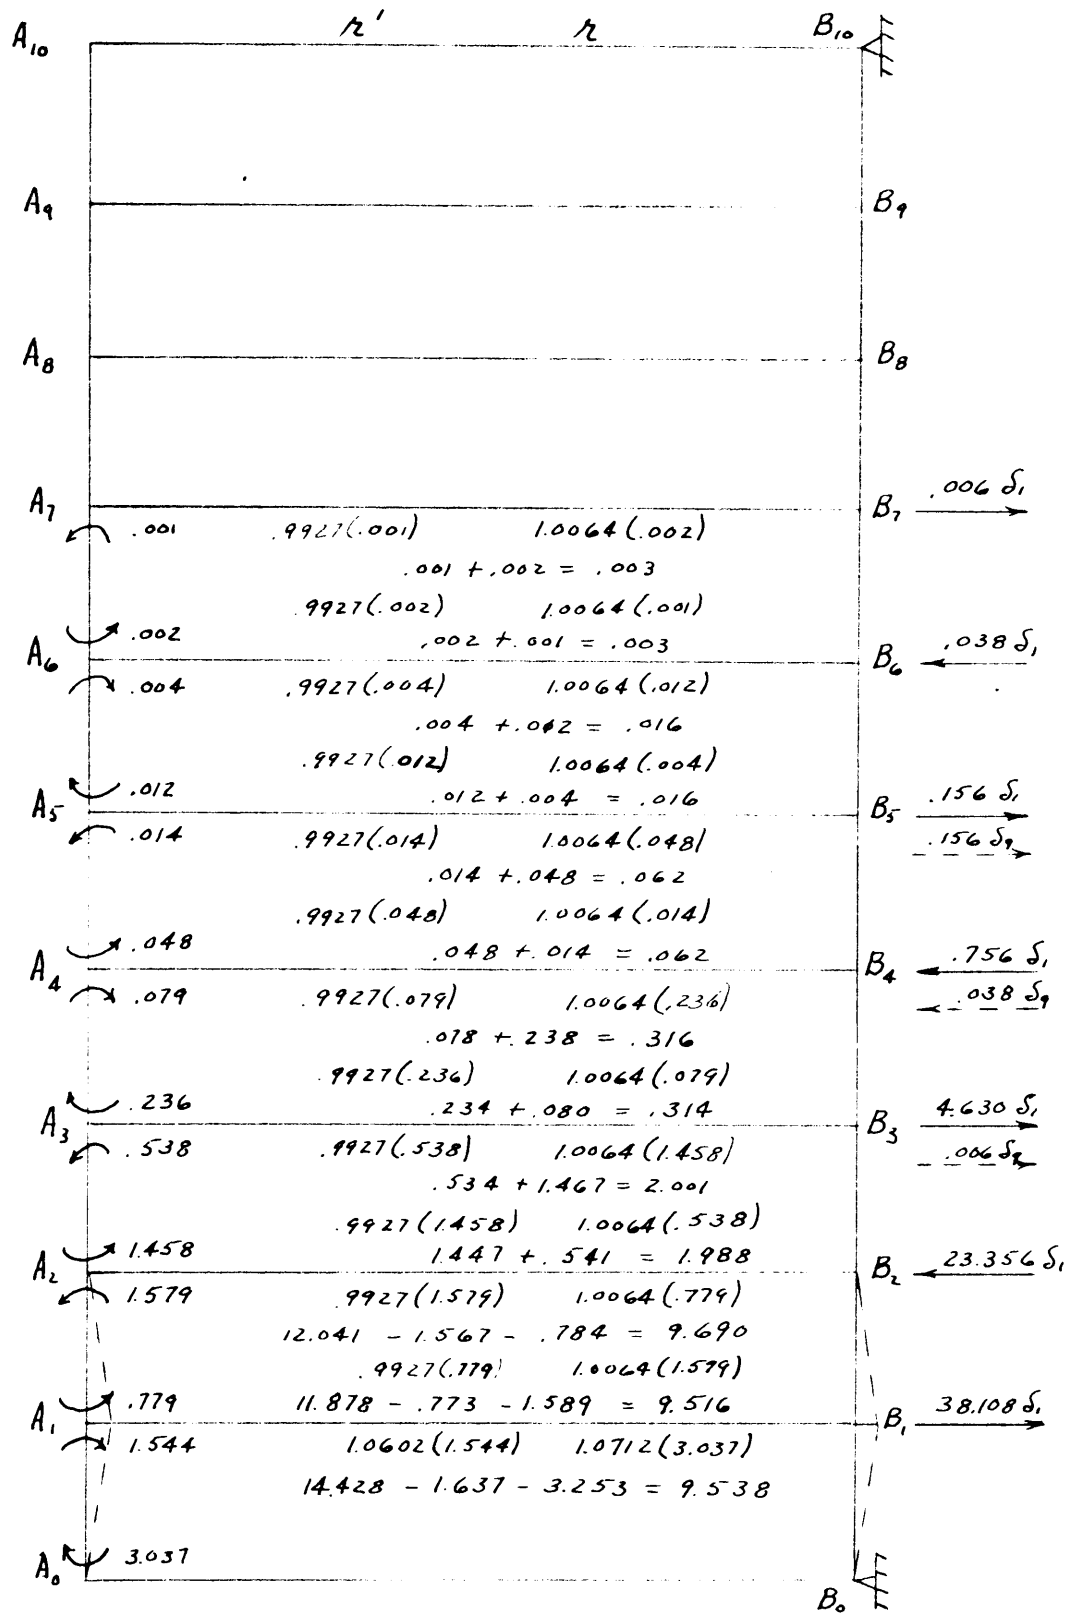 A₁₀ r' r B₁₀
A₉ B₉
A₈ B₈
.006 δ₁
A₇ B₇
.001 .9927(.001) 1.0064(.002)
.001 + .002 = .003
.9927(.002) 1.0064(.001)
.002 .002 + .001 = .003 .038 δ₁
A₆ B₆
.004 .9927(.004) 1.0064(.012)
.004 + .012 = .016
.9927(.012) 1.0064(.004)
.012 .012 + .004 = .016 .156 δ₁
A₅ B₅
.014 .9927(.014) 1.0064(.048) .156 δ₉
.014 + .048 = .062
.9927(.048) 1.0064(.014)
.048 .048 + .014 = .062 .756 δ₁
A₄ B₄
.079 .9927(.079) 1.0064(.236) .038 δ₉
.078 + .238 = .316
.9927(.236) 1.0064(.079)
.236 .234 + .080 = .314 4.630 δ₁
A₃ B₃
.538 .9927(.538) 1.0064(1.458) .006 δ₉
.534 + 1.467 = 2.001
.9927(1.458) 1.0064(.538)
1.458 1.447 + .541 = 1.988 23.356 δ₁
A₂ B₂
1.579 .9927(1.579) 1.0064(.779)
12.041 - 1.567 - .784 = 9.690
.9927(.779) 1.0064(1.579)
.779 11.878 - .773 - 1.589 = 9.516 38.108 δ₁
A₁ B₁
1.544 1.0602(1.544) 1.0712(3.037)
14.428 - 1.637 - 3.253 = 9.538
3.037
A₀ B₀